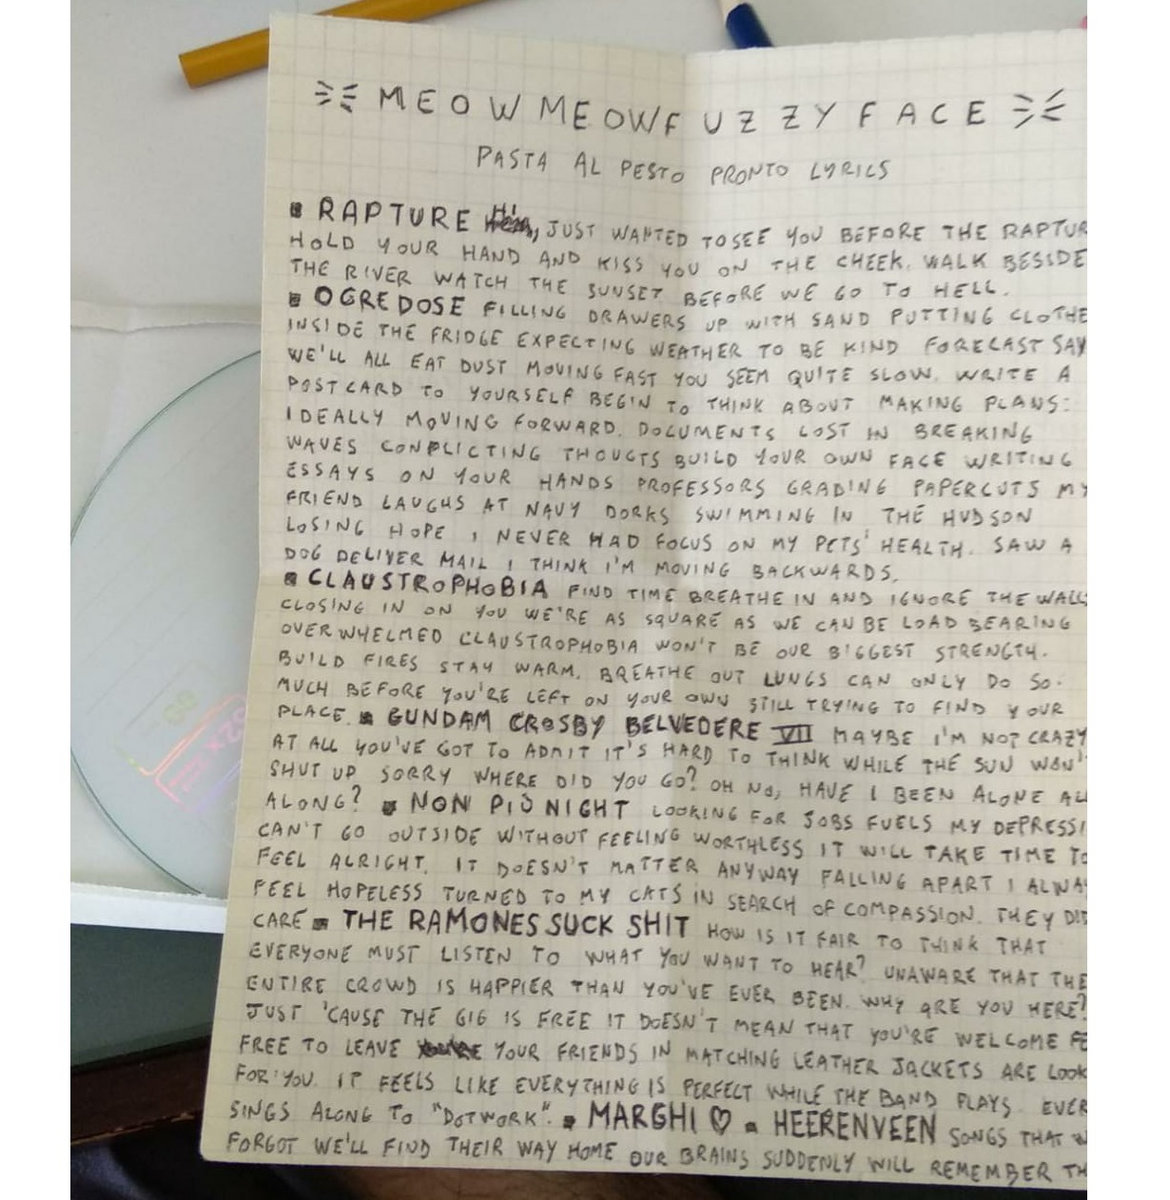 MEOWMEOWFUZZYFACE
PASTA AL PESTO PRONTO LYRICS
RAPTURE Hi, JUST WANTED TO SEE YOU BEFORE THE RAPTUR
HOLD YOUR HAND AND KISS YOU ON THE CHEEK. WALK BESIDE
THE RIVER WATCH THE SUNSET BEFORE WE GO TO HELL.
OGREDOSE FILLING DRAWERS UP WITH SAND PUTTING CLOTHE
INSIDE THE FRIDGE EXPECTING WEATHER TO BE KIND FORECAST SAY
WE'LL ALL EAT DUST MOVING FAST YOU SEEM QUITE SLOW. WRITE A
POSTCARD TO YOURSELF BEGIN TO THINK ABOUT MAKING PLANS:
IDEALLY MOVING FORWARD. DOCUMENTS LOST IN BREAKING
WAVES CONFLICTING THOUGTS BUILD YOUR OWN FACE WRITING
ESSAYS ON YOUR HANDS PROFESSORS GRADING PAPERCUTS MY
FRIEND LAUGHS AT NAVY DORKS SWIMMING IN THE HUDSON
LOSING HOPE I NEVER HAD FOCUS ON MY PETS' HEALTH. SAW A
DOG DELIVER MAIL I THINK I'M MOVING BACKWARDS.
CLAUSTROPHOBIA FIND TIME BREATHE IN AND IGNORE THE WALLS
CLOSING IN ON YOU WE'RE AS SQUARE AS WE CAN BE LOAD BEARING
OVERWHELMED CLAUSTROPHOBIA WON'T BE OUR BIGGEST STRENGTH.
BUILD FIRES STAY WARM. BREATHE OUT LUNGS CAN ONLY DO SO.
MUCH BEFORE YOU'RE LEFT ON YOUR OWN STILL TRYING TO FIND YOUR
PLACE. GUNDAM CROSBY BELVEDERE VII MAYBE I'M NOT CRAZY
AT ALL YOU'VE GOT TO ADMIT IT'S HARD TO THINK WHILE THE SUN WON'T
SHUT UP SORRY WHERE DID YOU GO? OH NO, HAVE I BEEN ALONE ALL
ALONG? NON PIÙ NIGHT LOOKING FOR JOBS FUELS MY DEPRESSI
CAN'T GO OUTSIDE WITHOUT FEELING WORTHLESS IT WILL TAKE TIME TO
FEEL ALRIGHT. IT DOESN'T MATTER ANYWAY FALLING APART I ALWA
FEEL HOPELESS TURNED TO MY CATS IN SEARCH OF COMPASSION. THEY DID
CARE THE RAMONES SUCK SHIT HOW IS IT FAIR TO THINK THAT
EVERYONE MUST LISTEN TO WHAT YOU WANT TO HEAR? UNAWARE THAT THE
ENTIRE CROWD IS HAPPIER THAN YOU'VE EVER BEEN. WHY ARE YOU HERE?
JUST 'CAUSE THE GIG IS FREE IT DOESN'T MEAN THAT YOU'RE WELCOME FE
FREE TO LEAVE YOUR FRIENDS IN MATCHING LEATHER JACKETS ARE LOOK
FOR YOU. IT FEELS LIKE EVERYTHING IS PERFECT WHILE THE BAND PLAYS. EVER
SINGS ALONG TO "DOTWORK". MARGHI ♡ HEERENVEEN SONGS THAT W
FORGOT WE'LL FIND THEIR WAY HOME OUR BRAINS SUDDENLY WILL REMEMBER TH
52x